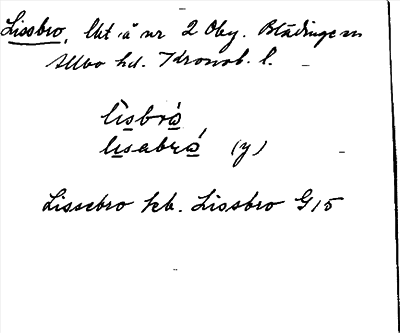 Lissbro, lht å nr 2 Oby. Blädinge sn
Allbo hd. Kronob. l.
lìsbrò̲
lisabrá (y)
Lissebro kb. Lissbro G15